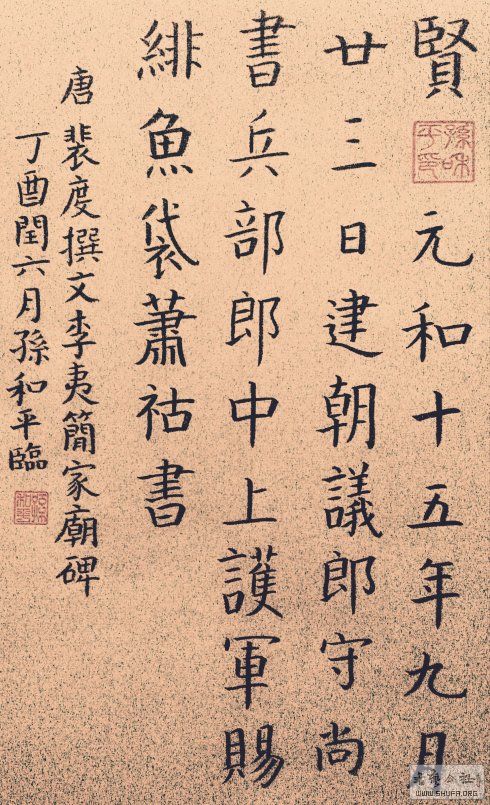 賢 元和十五年九月
廿三日建朝議郎守尚
書兵部郎中上護軍賜
緋魚袋蕭祜書
唐裴度撰文李夷簡家廟碑
丁酉閏六月孫和平臨
孫和平印
WWW.SHUFA.ORG